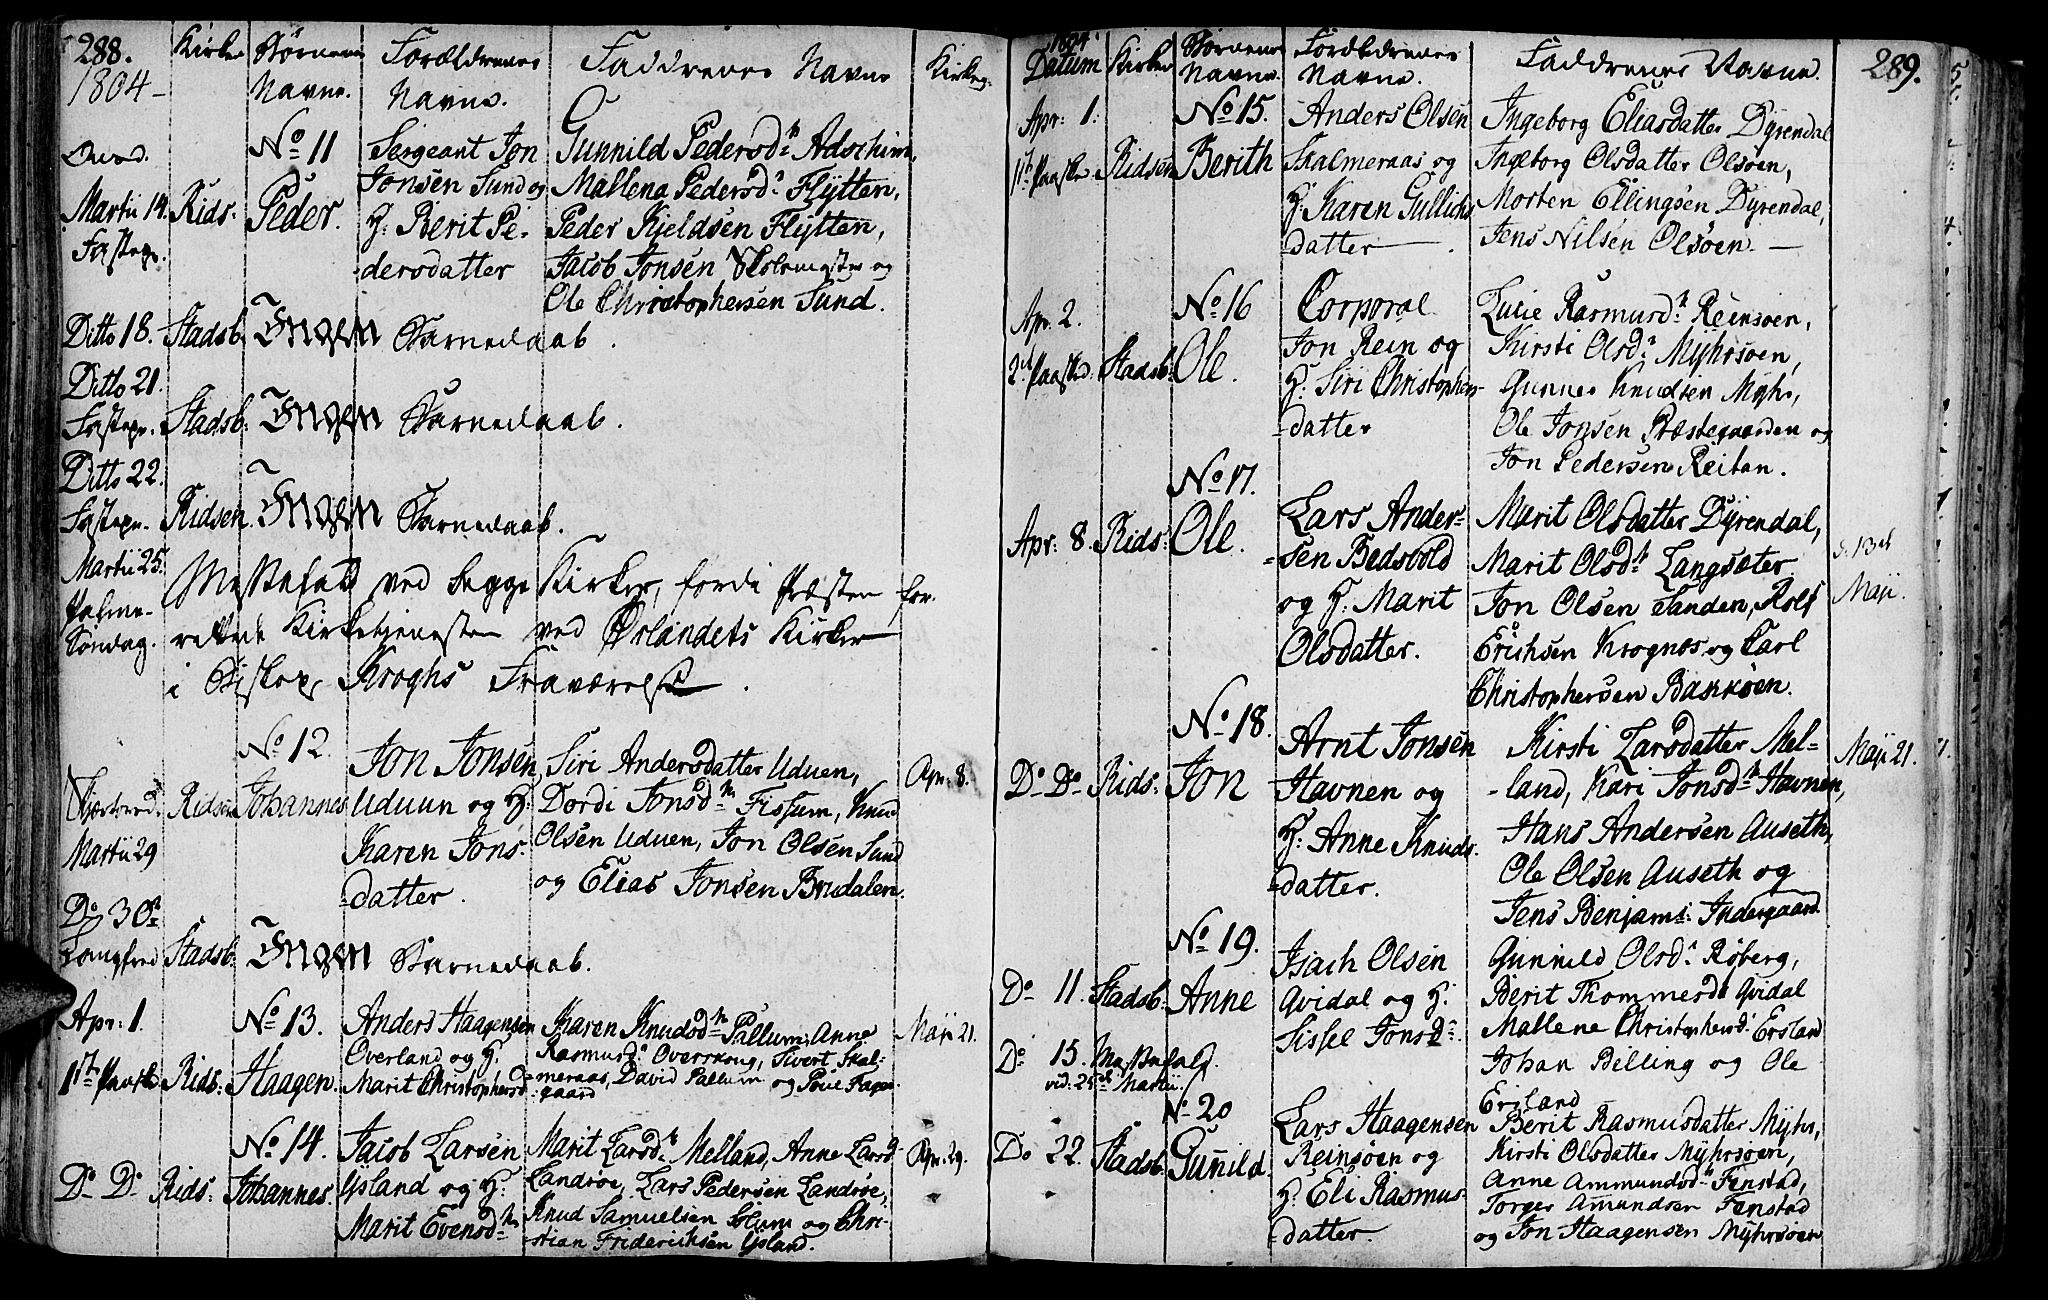 288.
1804-
Kirke
Børnenes
Navne.
Forældrenes
Navne.
Faddrenes Navne
Kirkeg:
Onsd.
Martii 14.
Fastepr.
Rids:
No 11
Peder.
Sergeant Jon
Jonsen Sund og
H: Berit Pe-
dersdatter
Gunnild Pedersdr
Mallena Pedersdr Flÿtten,
Peder Kjeldsen Flÿtten,
Jacob Jonsen Skolemester og
Ole Christophersen Sund.
Ditto 18. Stadsb. Ingen Barnedaab.
Ditto 21.
Fastepr. Stadsb: Ingen Barnedaab.
Ditto 22.
Fastepr. Ridsen Ingen Barnedaab.
Martii 25.
Palme-
Søndag.
Messefald ved begge Kirker, fordi Præsten for-
rettede Kirketjenesten ved Ørlandets Kirke
i Biskop Kroghs Fraværelse.
Skjærtorsd.
Martii 29
Ridsen
No 12.
Johannes
Jon Jonsen
Uduun og H:
Karen Jons-
datter.
Siri Andersdatter Uduen,
Dordi Jonsdr Fissum, Knud
Olsen Uduen, Jon Olsen Sund
og Elias Jonsen Brudalen.
Apr. 8.
Do 30
Langfred. Stadsb. Ingen Barnedaab.
Apr: 1.
1ste Paaske Rids:
No 13.
Haagen.
Anders Haagensen
Overland og H:
Marit Christophersd
Karen Knudsdr Pallum, Anne
Rasmusdr Overskoug, Sivert Skal-
meraas, David Pallum og Poul Fager-
gaard
Maji 21.
Do Do Rids:
No 14.
Johannes.
Jacob Larsen
Ÿsland og H:
Marit Evensdr
Marit Larsdr Melland, Anne Larsd
Landrøe, Lars Pedersen Landrøe,
Knud Samuelsen Solum og Chri-
stian Friderichsen Ÿsland.
Apr. 29.
1804.
Datum
Kirke
Børnenes
Navne.
Forældrenes
Navne.
Faddrenes Navne.
289.
Apr: 1.
1ste Paaske Ridsen
No 15.
Berith
Anders Olsen
Skalmeraas og
H: Karen Gullichs
datter
Ingeborg Eliasdatter Dÿrendal
Ingeborg Olsdatter Olsøen,
Morten Ellingsen Dÿrendal,
Jens Nilsen Olsøen.
Apr. 2.
2den Paasked: Stadsb:
No 16
Ole.
Corporal
Jon Rein og
H: Siri Christophers-
datter
Lucie Rasmusdr Reinsøen,
Kirsti Olsdr Mÿhrsøen,
Gunner Knudsen Mÿhr,
Ole Jonsen Præstegaarden og
Jon Pedersen Reitan.
Apr: 8. Rids:
No 17.
Ole.
Lars Ander-
sen Bedsvold
og H. Marit
Olsdatter.
Marit Olsdatter Dÿrendal,
Marit Olsdr Langsæter
Jon Olsen Sanden, Rolf
Erichsen Krognes og Carl
Christophersen Bakkøen.
d. 13de
Maji.
Do Do Rids:
No 18.
Jon
Arnt Jonsen
Havnen og
H: Anne Knuds-
datter.
Kirsti Larsdatter Mel-
land, Kari Jonsdr Havnen,
Hans Andersen Auseth,
Ole Olsen Auseth og
Jens Benjams: Indergaard.
Maji 21.
Do 11. Stadsb:
No 19.
Anne
Isach Olsen
Qvidal og H:
Sissel Jonsdr.
Gunnild Olsdr Røberg,
Berit Thommesdr Qvidal
Mallene Christophersdr Ersland
Johan Belling og Ole
Ersland
Do 15. Messefald.
vid: 25de Martii.
Do 22. Stadsb:
No 20
Gunild.
Lars Haagensen
Reinsøen og
H: Eli Rasmus-
datter.
Berit Rasmusdatter Mÿhr,
Kirsti Olsdatter Mÿhrsøen,
Anne Ammundsdr Fenstad,
Torger Amundsen Fenstad
og Jon Haagensen Mÿhrsøen